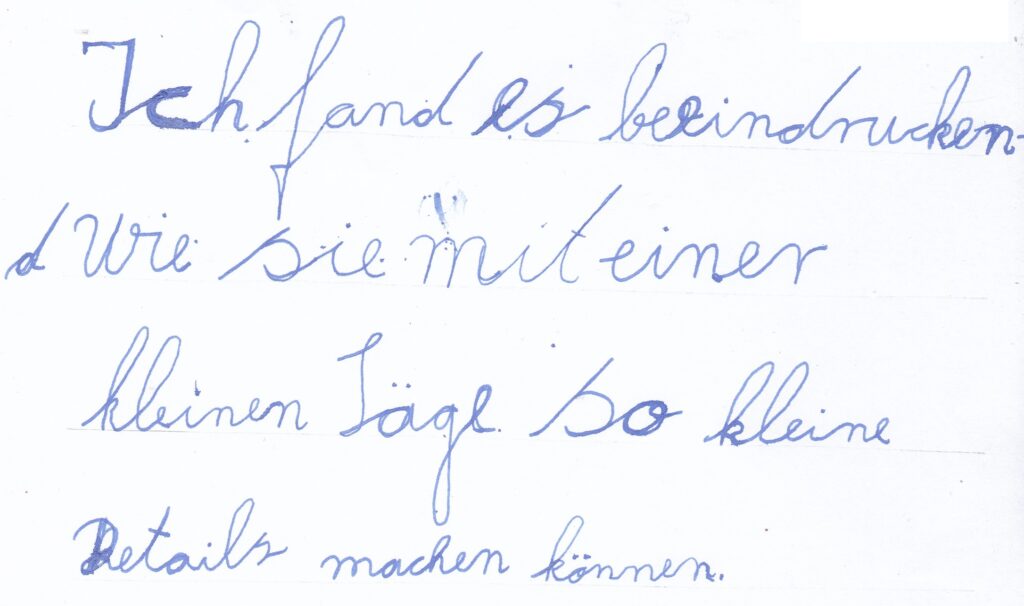 Ich fand es beeindrucken-
d Wie sie mit einer
kleinen Säge so kleine
Details machen können.